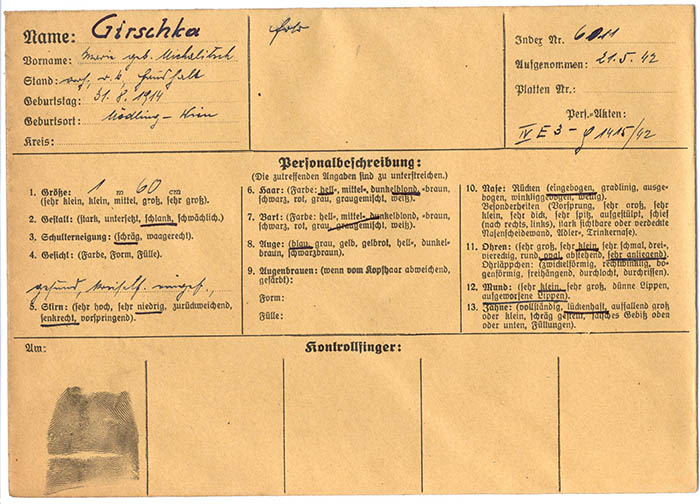 Name: Girschka
Vorname: Marie geb. Michalitsch
Stand: verh., r. k., Haushalt
Geburtstag: 31. 8. 1914
Geburtsort: Mödling - Wien
Kreis:
Index Nr. 6011
Aufgenommen: 21. 5. 42
Platten Nr.:
Pers.-Akten:
IV E 3 - g 1415/42
Personalbeschreibung:
(Die zutreffenden Angaben sind zu unterstreichen.)
1. Größe: 1 m 60 cm
(sehr klein, klein, mittel, groß, sehr groß).
2. Gestalt: (stark, untersetzt, schlank, schwächlich.)
3. Schulterneigung: (schräg, waagerecht).
4. Gesicht: (Farbe, Form, Fülle).
gesund,
5. Stirn: (sehr hoch, sehr niedrig, zurückweichend,
senkrecht, vorspringend).
6. Haar: (Farbe: hell-, mittel-, dunkelblond, -braun,
schwarz, rot, grau, graugemischt, weiß).
7. Bart: (Farbe: hell-, mittel-, dunkelblond, -braun,
schwarz, rot, grau, graugemischt, weiß).
8. Auge: (blau, grau, gelb, gelbrot, hell-, dunkel-
braun, schwarzbraun).
9. Augenbrauen: (wenn vom Kopfhaar abweichend,
gefärbt):
Form:
Fülle:
10. Nase: Rücken (eingebogen, gradlinig, ausge-
bogen, winkliggebogen, wellig).
Besonderheiten (Vorsprung, sehr groß, sehr
klein, sehr dick, sehr spitz, aufgestülpt, schief
(nach rechts, links), stark sichtbare oder verdeckte
Nasenscheidewand, Adler-, Trinkernase).
11. Ohren: (sehr groß, sehr klein, sehr schmal, drei-,
viereckig, rund, oval, abstehend, sehr anliegend).
Ohrläppchen: (zwickelförmig, rechtwinklig, bo-
genförmig, freihängend, durchlocht, durchrissen).
12. Mund: (sehr klein, sehr groß, dünne Lippen,
aufgeworfene Lippen).
13. Zähne: (vollständig, lückenhaft, auffallend groß
oder klein, schräg gestellt, falsches Gebiß oben
oder unten, Füllungen).
Am:
Kontrollfinger: